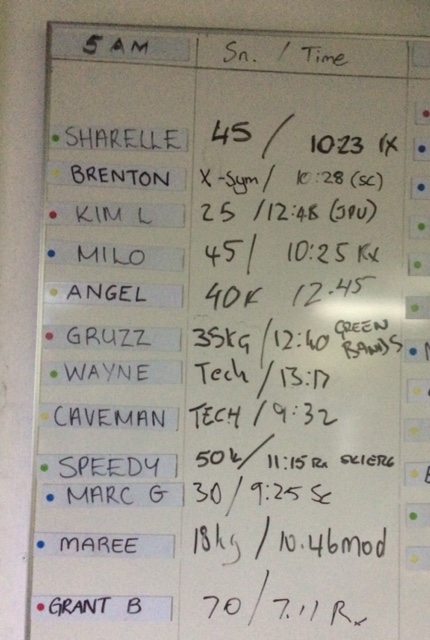 5 AM Sn. / Time
SHARELLE 45 / 10:23 RX
BRENTON X-Sym / 10:28 (SC)
KIM L 25 / 12:48 (JPU)
MILO 45 / 10:25 Rx
ANGEL 40K 12.45
GRUZZ 35KG / 12:40 GREEN BANDS
WAYNE Tech / 13:17
CAVEMAN TECH / 9:32
SPEEDY 50k / 11:15 Rx SKIERG
MARC G 30 / 9:25 Sc
MAREE 18kg / 10.46 mod
GRANT B 70 / 7.11 Rx